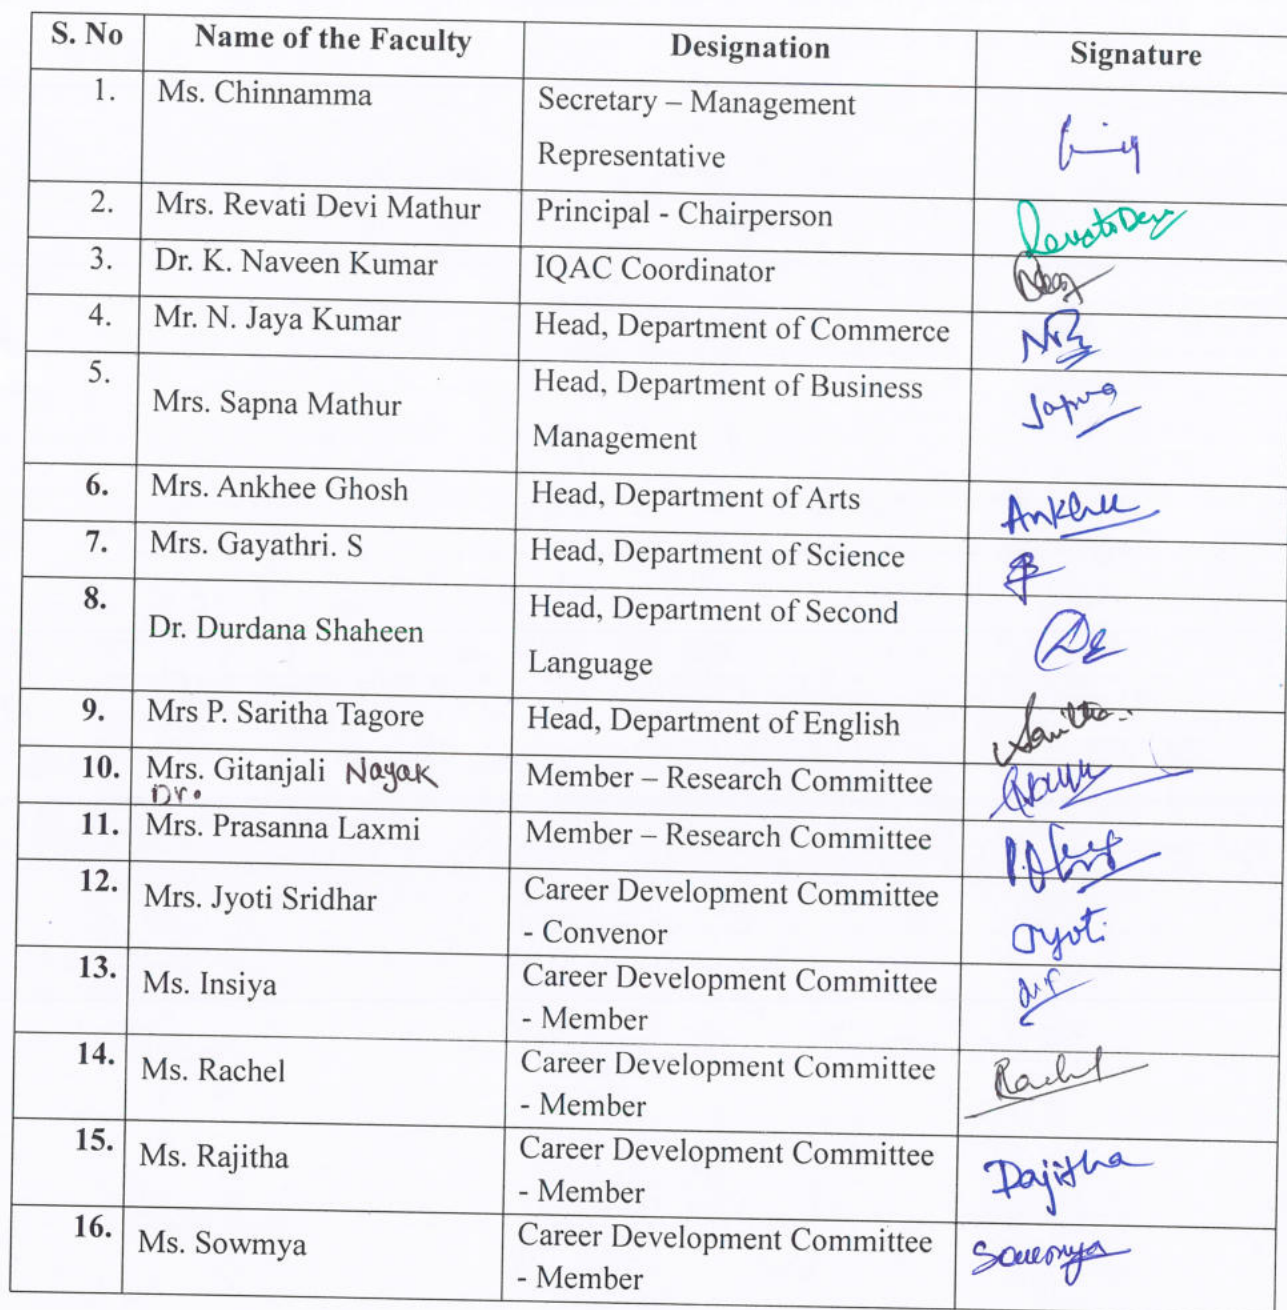 S. No Name of the Faculty Designation Signature
1. Ms. Chinnamma Secretary – Management
Representative
2. Mrs. Revati Devi Mathur Principal - Chairperson RevatiDevi
3. Dr. K. Naveen Kumar IQAC Coordinator
4. Mr. N. Jaya Kumar Head, Department of Commerce
5. Mrs. Sapna Mathur Head, Department of Business
Management Sapna
6. Mrs. Ankhee Ghosh Head, Department of Arts Ankhee
7. Mrs. Gayathri. S Head, Department of Science
8. Dr. Durdana Shaheen Head, Department of Second
Language
9. Mrs P. Saritha Tagore Head, Department of English Saritha
10. Mrs. Gitanjali Nayak Member – Research Committee
Dr.
11. Mrs. Prasanna Laxmi Member – Research Committee
12. Mrs. Jyoti Sridhar Career Development Committee
- Convenor Jyoti
13. Ms. Insiya Career Development Committee
- Member
14. Ms. Rachel Career Development Committee Rachel
- Member
15. Ms. Rajitha Career Development Committee Rajitha
- Member
16. Ms. Sowmya Career Development Committee Sowmya
- Member